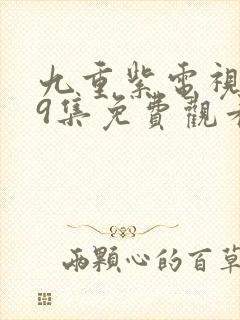 九重紫電視
9集免費觀看
兩顆心的百草